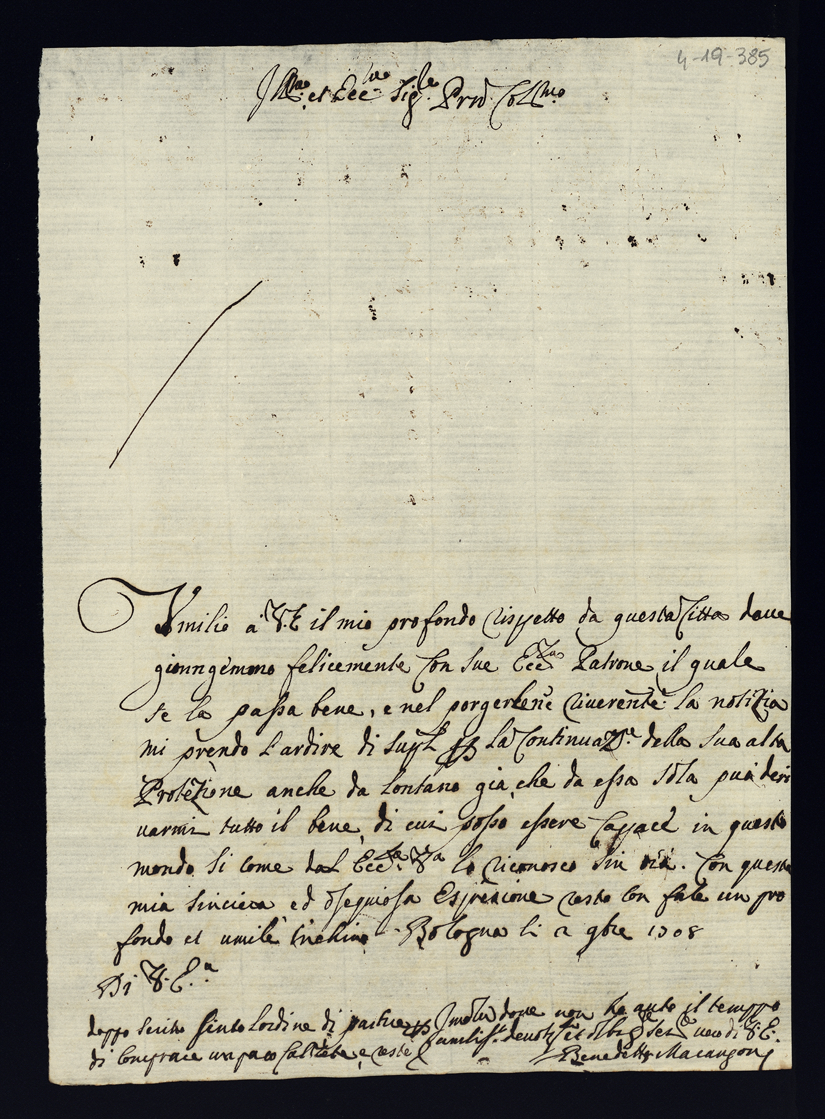 4-19-385
Ill.mo et Ecc.mo Sig.re Prod. Coll.mo
Vmilio à V.E il mio profondo rispetto da questa Citta doue
gionngemmo felicemente con sue Ecc.za Patrone il quale
se la passa bene, e nel porgerlene riuerente la notizia
mi prendo l'ardire di la Continuaz.e della sua alta
Protezione anche da lontano già che da essa sola puà deri
uarmi tutto il bene di cui posso essere Cappace in questo
mondo si come dal Ecc.za V.a lo riconosco sin ora. Con questa
mia sincera ed ossequiosa Espresione resto con farle un pro
fondo et umile inchino. Bologna li 2 9bre 1708
Di V.E.a
doppo scrito sinto lordine di partire Imola doue non ho auto il temppo
di Comprare un paro Calzete e resto umiliss. deuotis. et obligs. Ser. uero di V.E.
Benedetto Macangoni